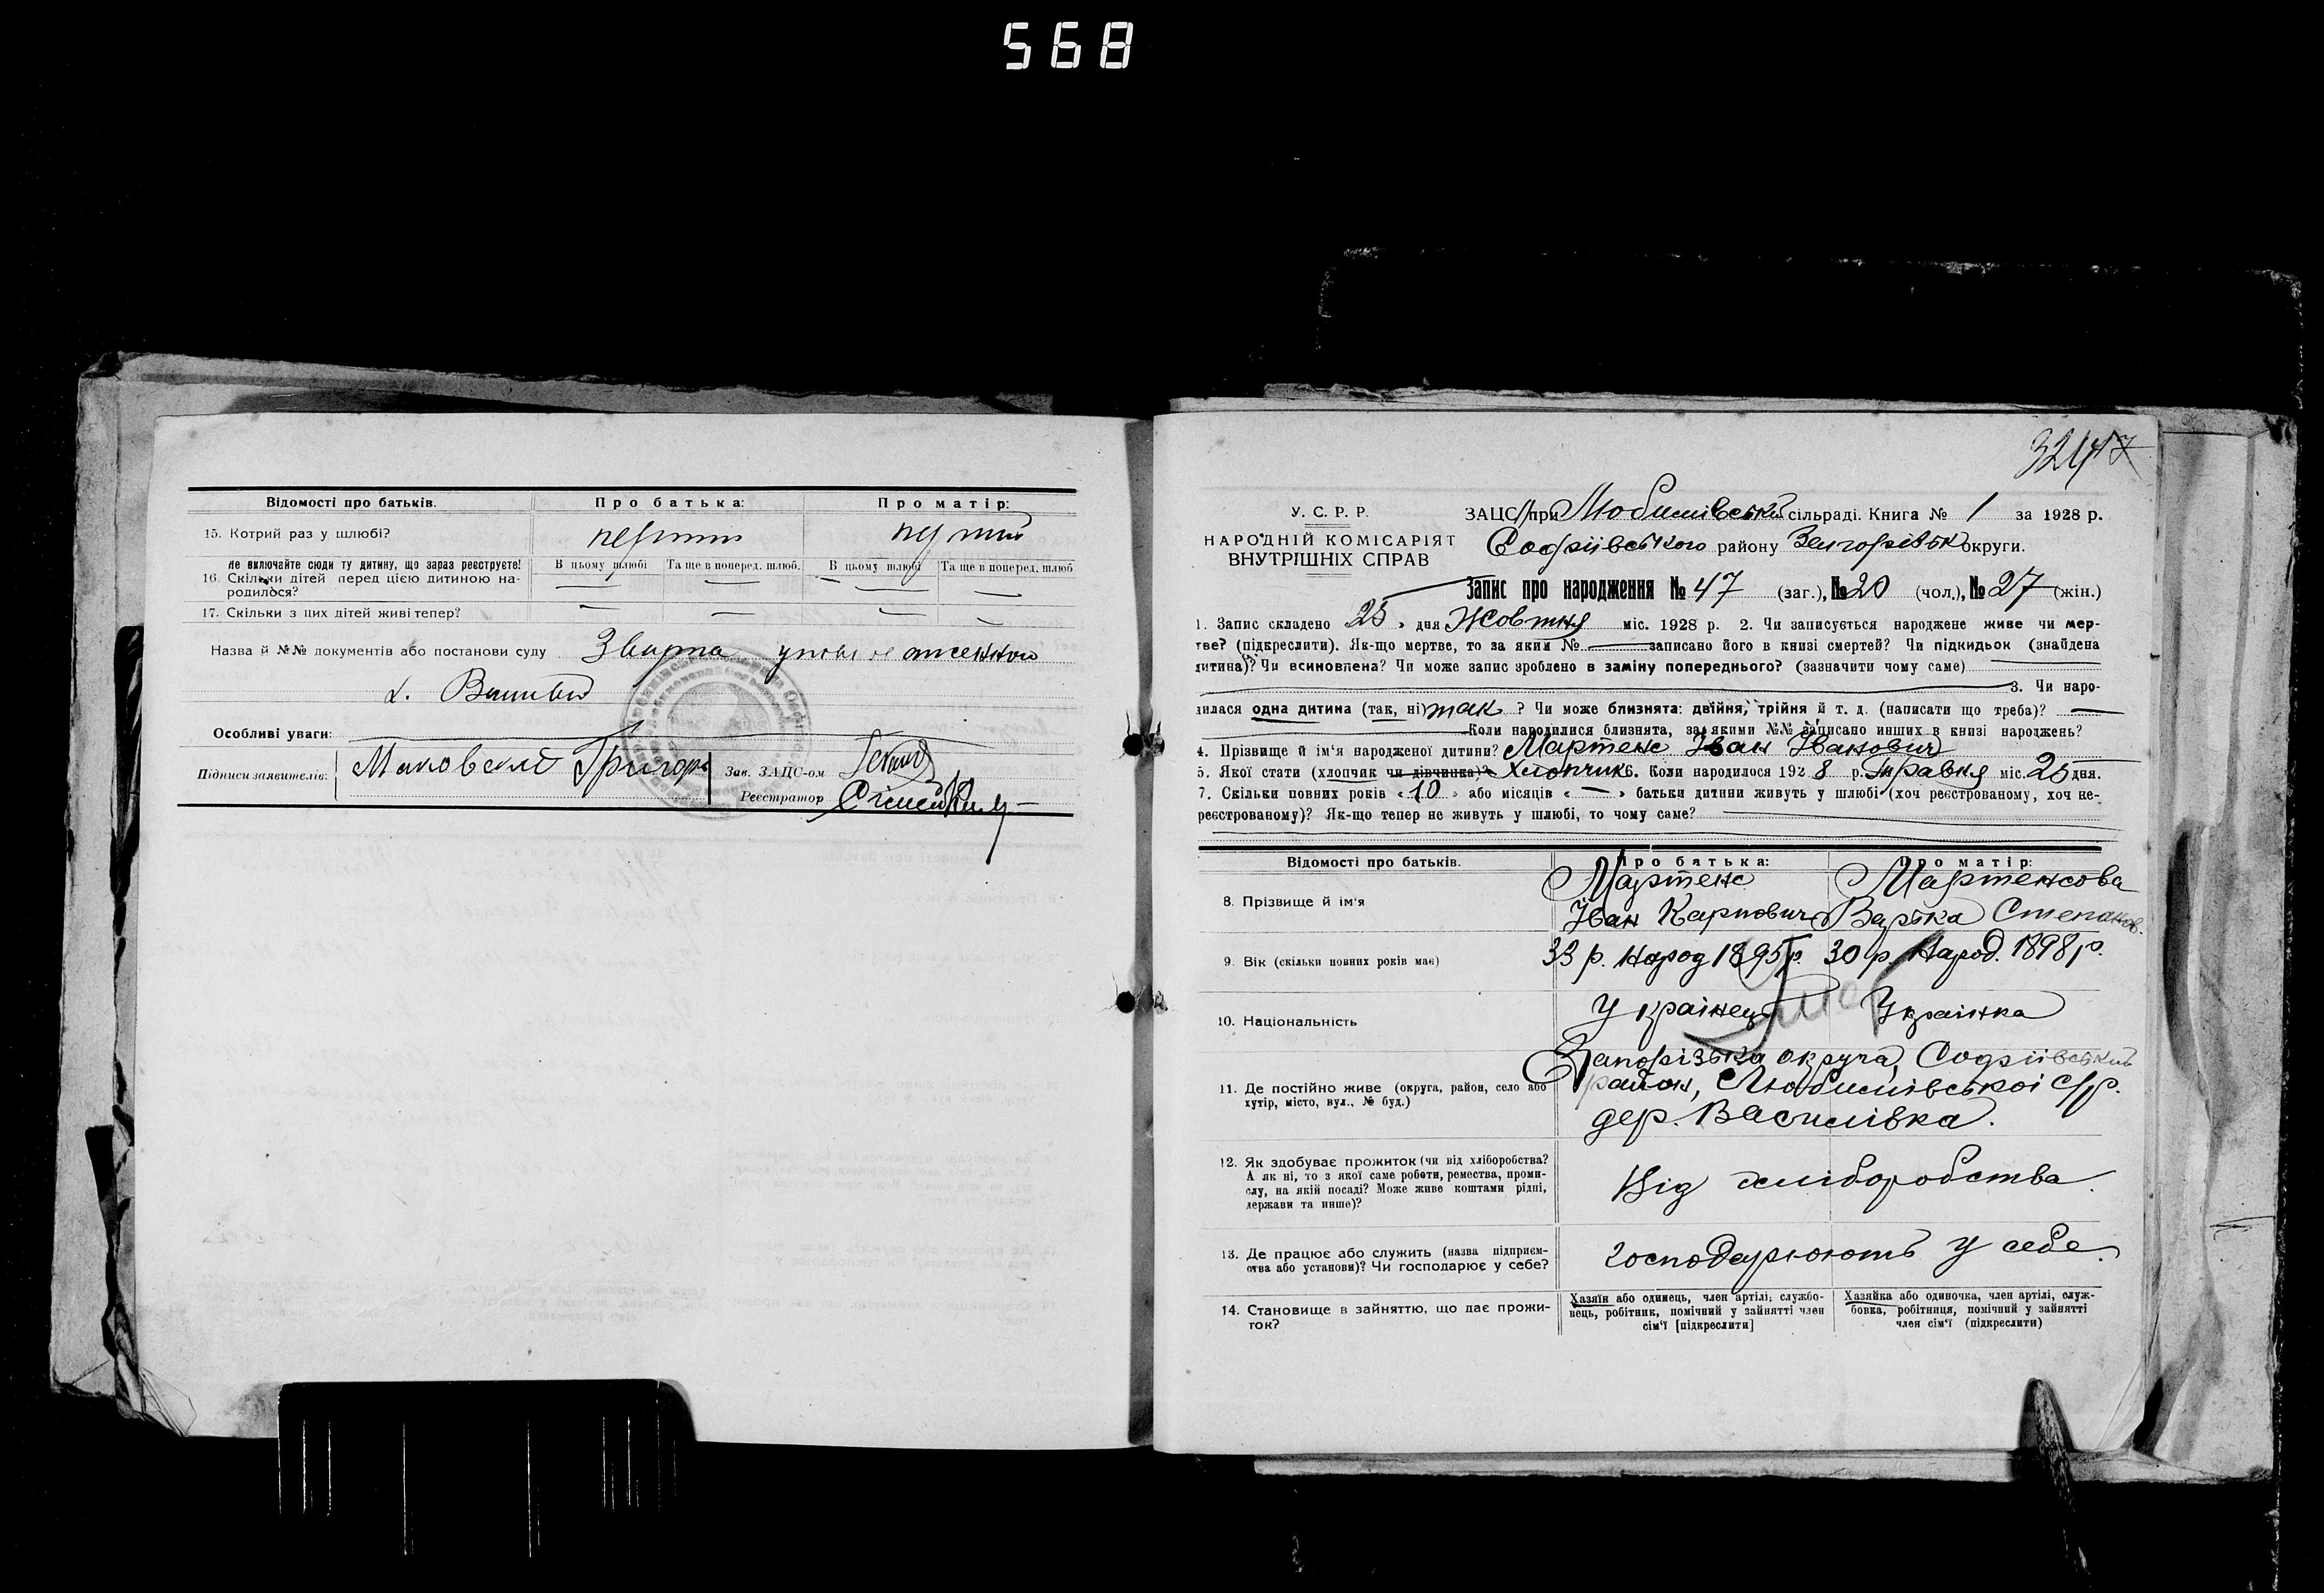 568
Відомості про батьків. Про батька: Про матір:
15. Котрий раз у шлюбі? перший перший
Не включайте сюди ту дитину, що зараз реєструєте! В цьому шлюбі Та ще в поперед. шлюб. В цьому шлюбі Та ще в поперед. шлюб
16. Скільки дітей перед цією дитиною на-
родилося? — — — —
17. Скільки з цих дітей живі тепер? — — — —
Назва й №№ документів або постанови суду
Особливі уваги:
Підписи заявителів: Маковский Григорь Зав. ЗАЦС-ом
Реєстратор
3247
У. С. Р. Р.
НАРОДНІЙ КОМІСАРІЯТ
ВНУТРІШНІХ СПРАВ
ЗАЦС при Любимівській сільраді. Книга № 1 за 1928 р.
Софіївського району Запорізьк округи.
Запис про народження № 47 (заг.), № 20 (чол.), № 27 (жін.)
1. Запис складено 25 » дня Жовтня міс. 1928 р. 2. Чи записується народжене живе чи мер-
тве? (підкреслити). Як-що мертве, то за яким № — записано його в книзі смертей? Чи підкидьок (знайдена
дитина)? Чи всиновлена? Чи може запис зроблено в заміну попереднього? (зазначити чому саме)
3. Чи наро-
дилася одна дитина (так, ні) так ? Чи може близнята: двійня, трійня й т. д. (написати що треба)? —
Коли народилися близнята, за якими №№ записано инших в книзі народжень?
4. Прізвище й ім'я народженої дитини? Мартенс Іван Іванович
5. Якої статі (хлопчик чи дівчинка)? Хлопчик 6. Коли народилося 1928 р. Травня міс. 25 дня.
7. Скільки повних років « 10 » або місяців « — » батьки дитини живуть у шлюбі (хоч реєстрованому, хоч не-
реєстрованому)? Як-що тепер не живуть у шлюбі, то чому саме?
Відомості про батьків. Про батька: Про матір:
8. Прізвище й ім'я Мартенс Іван Карпович Мартенсова Варька Степанов.
9. Вік (скільки повних років має) 33 р. Народ 1895 р. 30 р. Народ. 1898 р.
10. Національність Українець Українка
11. Де постійно живе (округа, район, село або
хутір, місто, вул., № буд.)
Запорізька округа, Софіївський
район, Любимівської с/р.
дер. Василівка.
12. Як здобуває прожиток (чи від хліборобства?
А як ні, то з якої саме роботи, ремества, проми-
слу, на якій посаді? Може живе коштами рідні,
держави та инше)?
Від хліборобства.
13. Де працює або служить (назва підприєм-
ства або установи)? Чи господарює у себе?
господарюють у себе.
14. Становище в зайняттю, що дає прожи-
ток?
Хазяїн або одинець, член артілі, службо-
вець, робітник, помічний у зайнятті член
сім'ї [підкреслити]
Хазяйка або одиночка, член артілі, служ-
бовка, робітниця, помічний у зайнятті
член сім'ї (підкреслити)